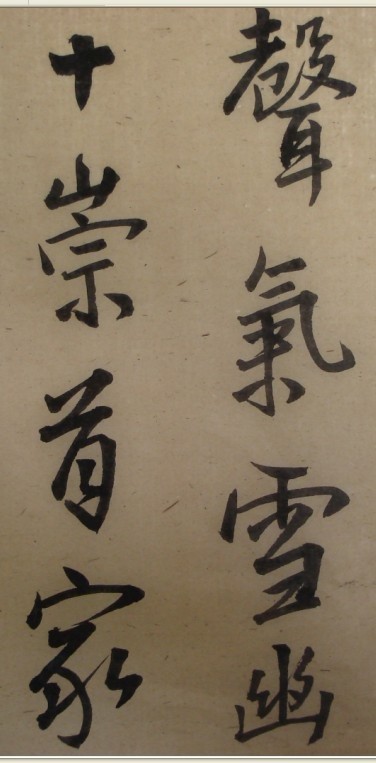 聲氣雪幽
十崇首家